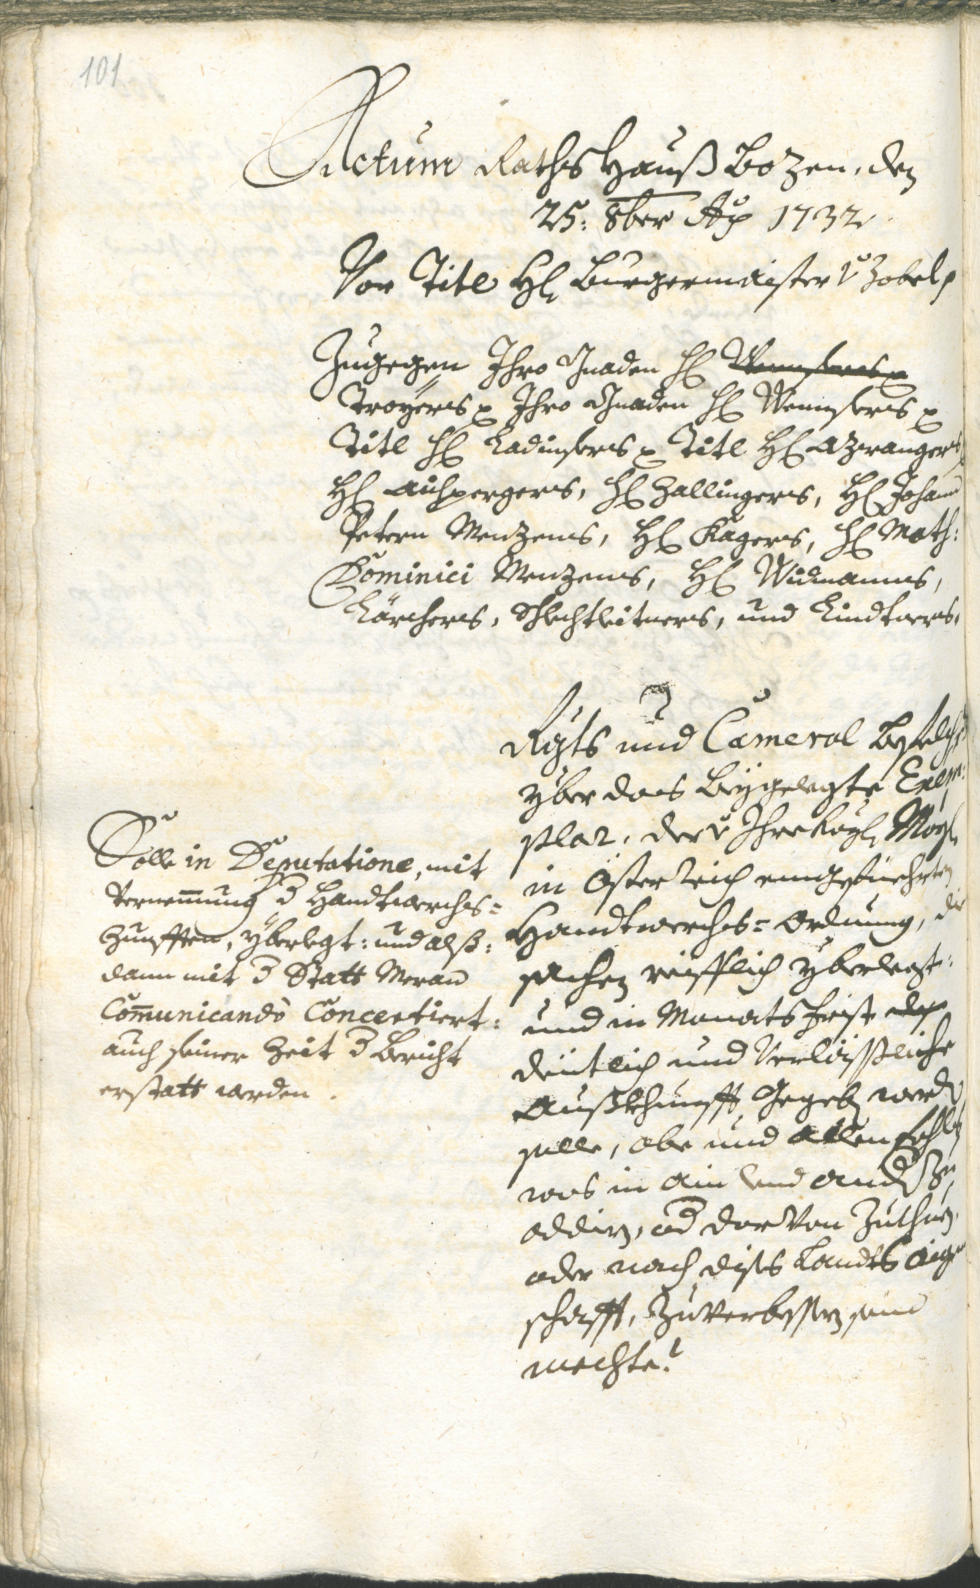 101
Actum RathsHauß Bozen, den
25: 8ber Aõ 1732
Vor Titl H: Burgermaister v Zobel p
Zugegen Ihro Gnaden H:
Troyers p Ihro Gnaden H: Wenusers p
Titl H: Ladinsers p Titl H: Azwangers
H: Aufpergers, H: Zallingers, H: Johann
Petern Menzens, H: Kagers, H: Math:
Dominici Menzens, H: Widmanns,
Lärchers, Schlechtleitners, und Lindtners.
Rgts und Cameral Befelch
yber das beygelegte Exem:
plar, der v Ihro Kayl: Mayl:
in Österreich eingefiehrten
Handtwerchs=Ordnung, die
sachen reifflich yberlegt:
und in Monats frist
deutlich und Verläßliche
Außkhunfft gegeben werden
solle, obe und allenfahls
was in ain und andern Zu
addirn, od darvon Zuthun,
oder nach dises Landts aigen
schafft, Zuverbessern sein
mechte?
Solle in Deputatione, mit
Vernemmung d Handtwerchs=
Zunfften, yberlegt: und alß:
dann mit d Statt Meran
Communicando Concertiert:
auch seiner Zeit d Bericht
erstatt werden.